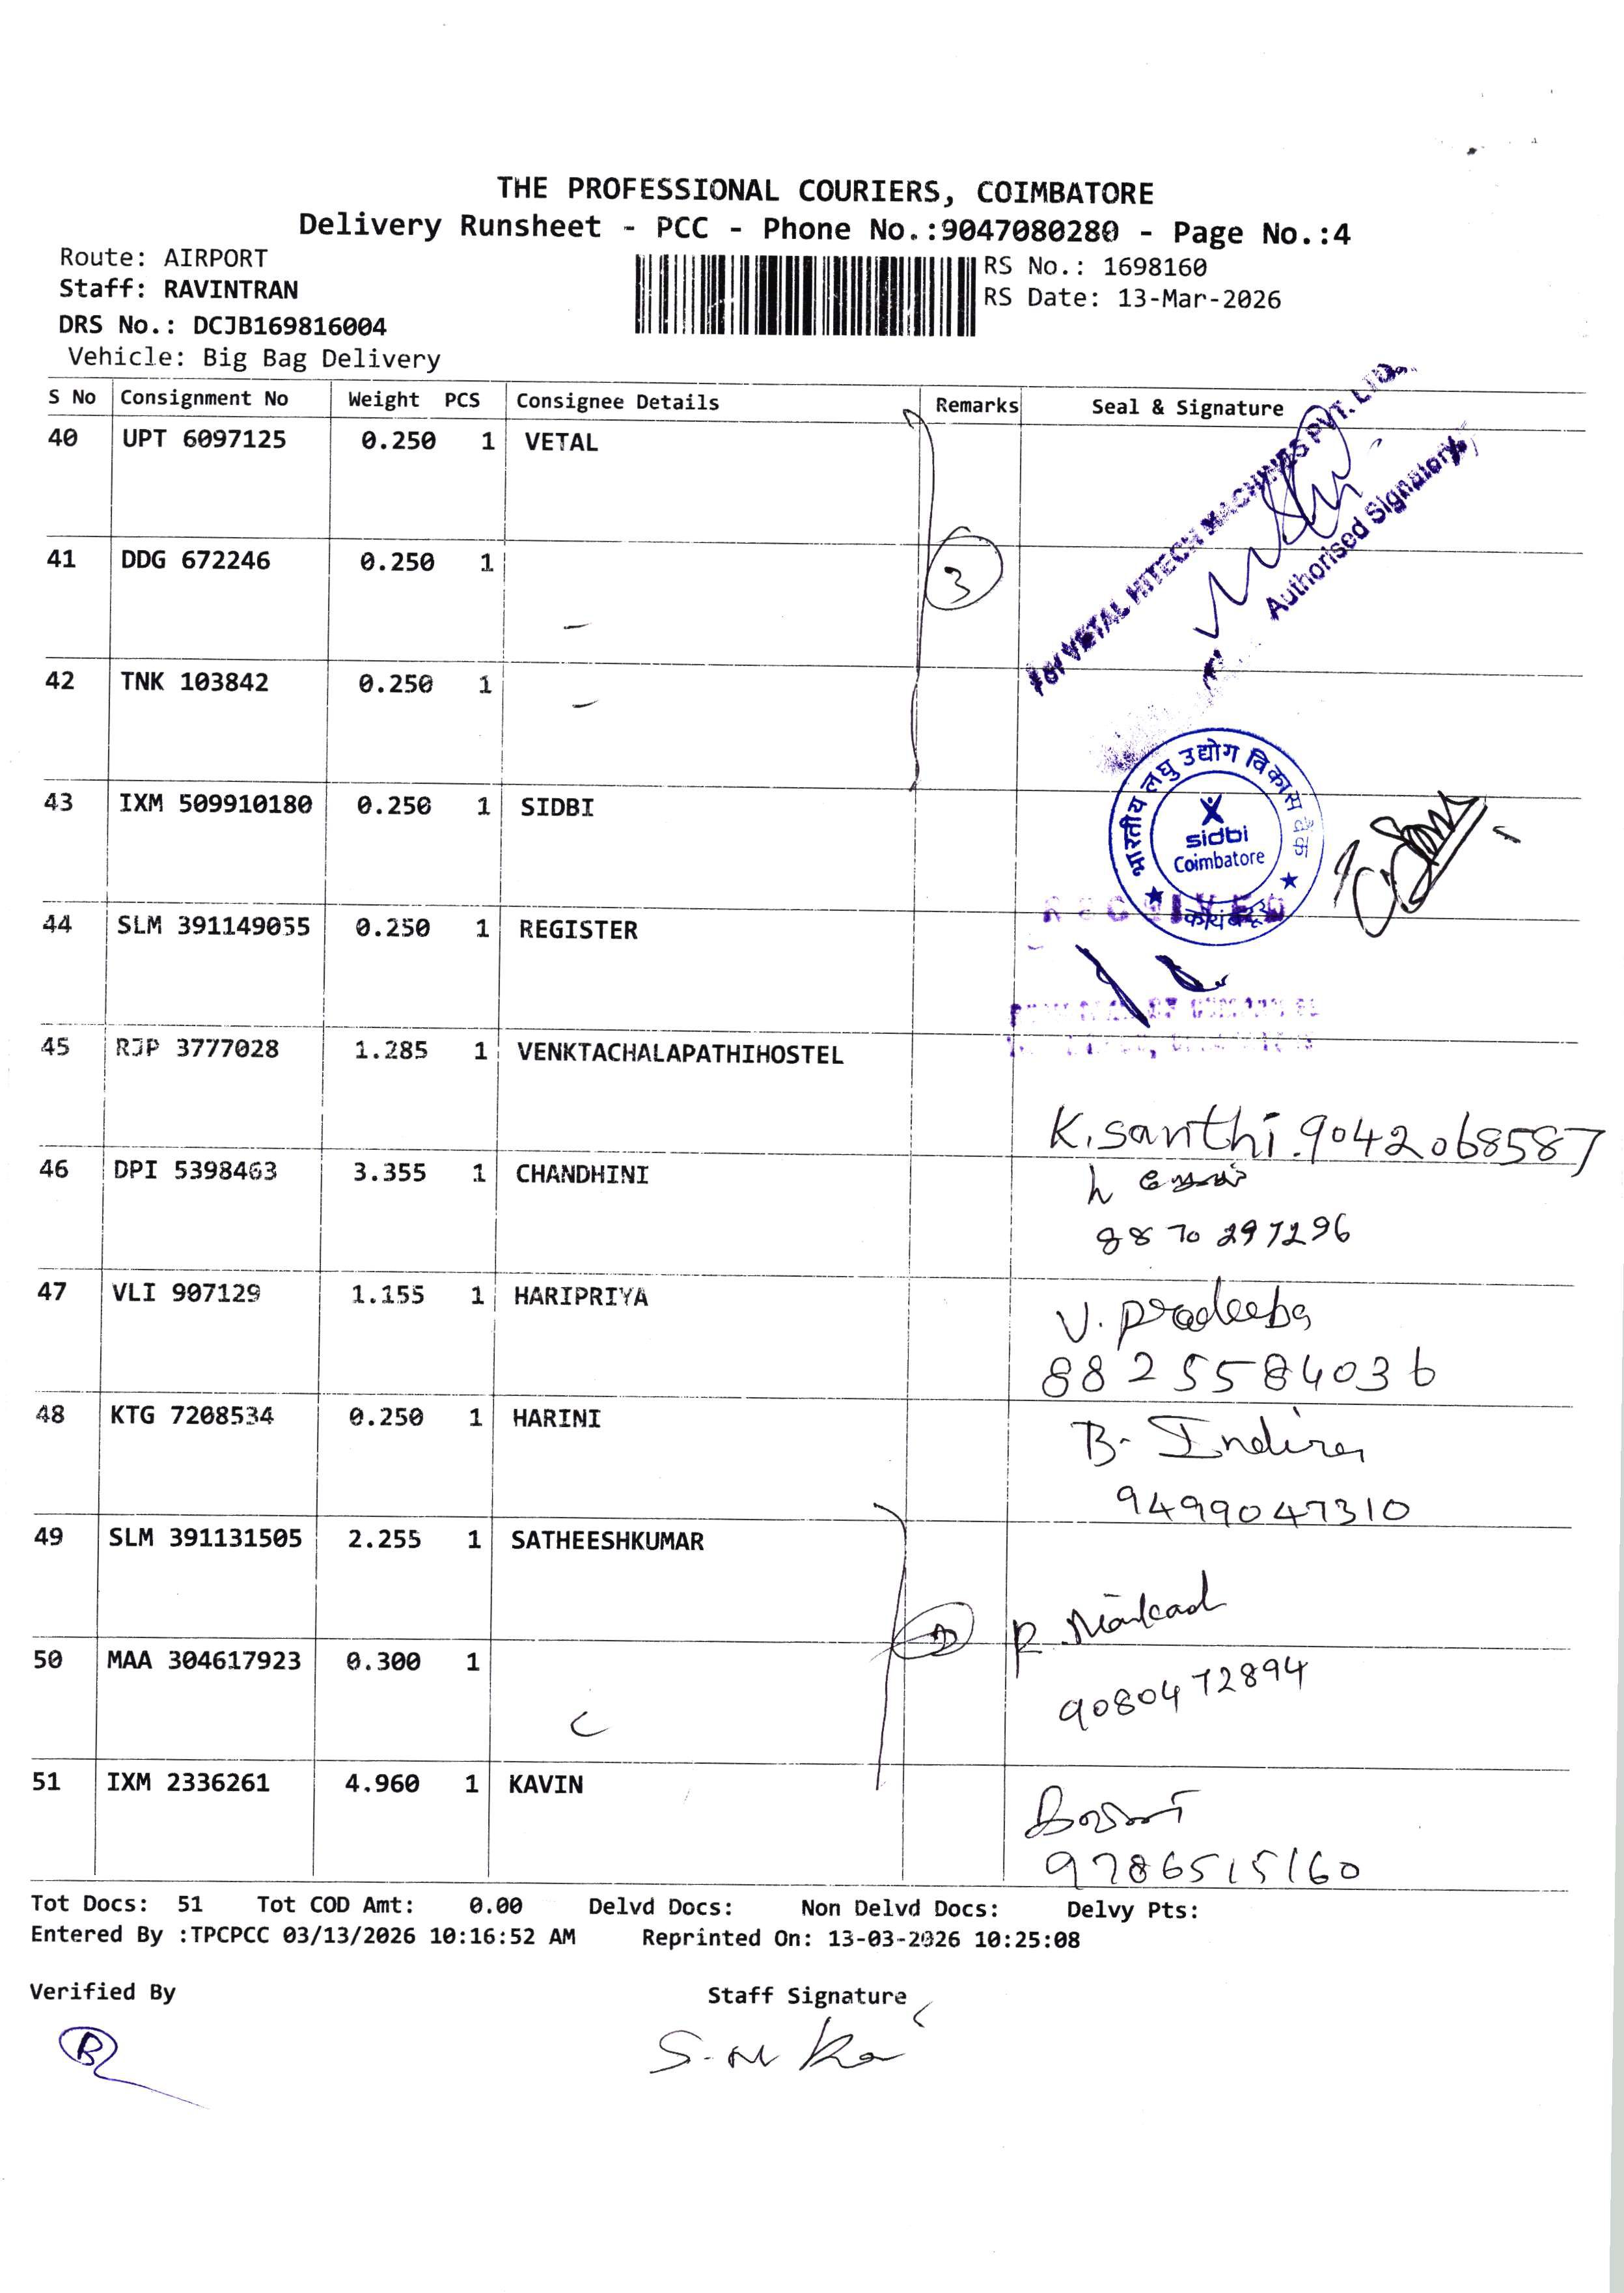 THE PROFESSIONAL COURIERS, COIMBATORE
Delivery Runsheet - PCC - Phone No.:9047080280 - Page No.:4
Route: AIRPORT
RS No.: 1698160
Staff: RAVINTRAN
RS Date: 13-Mar-2026
DRS No.: DCJB169816004
Vehicle: Big Bag Delivery
S No Consignment No Weight PCS Consignee Details Remarks Seal & Signature
40 UPT 6097125 0.250 1 VETAL
VETAL HITECH MACHINES PVT. LTD.
Authorised Signatory
41 DDG 672246 0.250 1
3
42 TNK 103842 0.250 1
43 IXM 509910180 0.250 1 SIDBI
भारतीय लघु उद्योग विकास बैंक
sidbi
Coimbatore
44 SLM 391149055 0.250 1 REGISTER
RECEIVED
45 RJP 3777028 1.285 1 VENKTACHALAPATHIHOSTEL
K.santhi.9042068587
46 DPI 5398463 3.355 1 CHANDHINI
8870297296
47 VLI 907129 1.155 1 HARIPRIYA
V. Pradeeba
8825584036
48 KTG 7208534 0.250 1 HARINI
B. Indira
9499047310
49 SLM 391131505 2.255 1 SATHEESHKUMAR
50 MAA 304617923 0.300 1
9080472894
51 IXM 2336261 4.960 1 KAVIN
9786515160
Tot Docs: 51 Tot COD Amt: 0.00 Delvd Docs: Non Delvd Docs: Delvy Pts:
Entered By :TPCPCC 03/13/2026 10:16:52 AM Reprinted On: 13-03-2026 10:25:08
Verified By Staff Signature